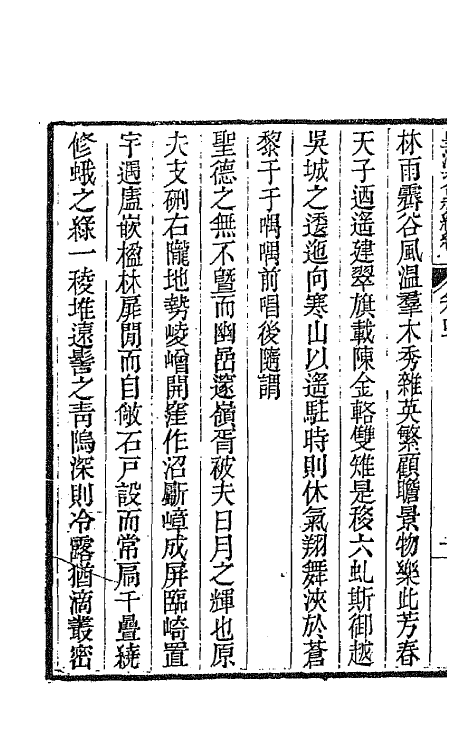 林雨霽谷風溫羣木秀雜英繁顧瞻景物樂此芳春
天子迺遙建翠旗載陳金輅雙雉是移六虬斯御越
吳城之逶迤向寒山以遙駐時則休氣翔舞浹於蒼
黎于于喁喁前唱後隨謂
聖德之無不曁而幽嵒邃嶺胥被夫日月之輝也原
夫支硎右隴地勢崚嶒開窪作沼斸嶂成屏臨崎置
宇遇廬嵌楹林扉閒而自敞石戸設而常扃千疊繞
修蛾之綠一稜堆遠髻之靑隖深則冷露猶滴叢密